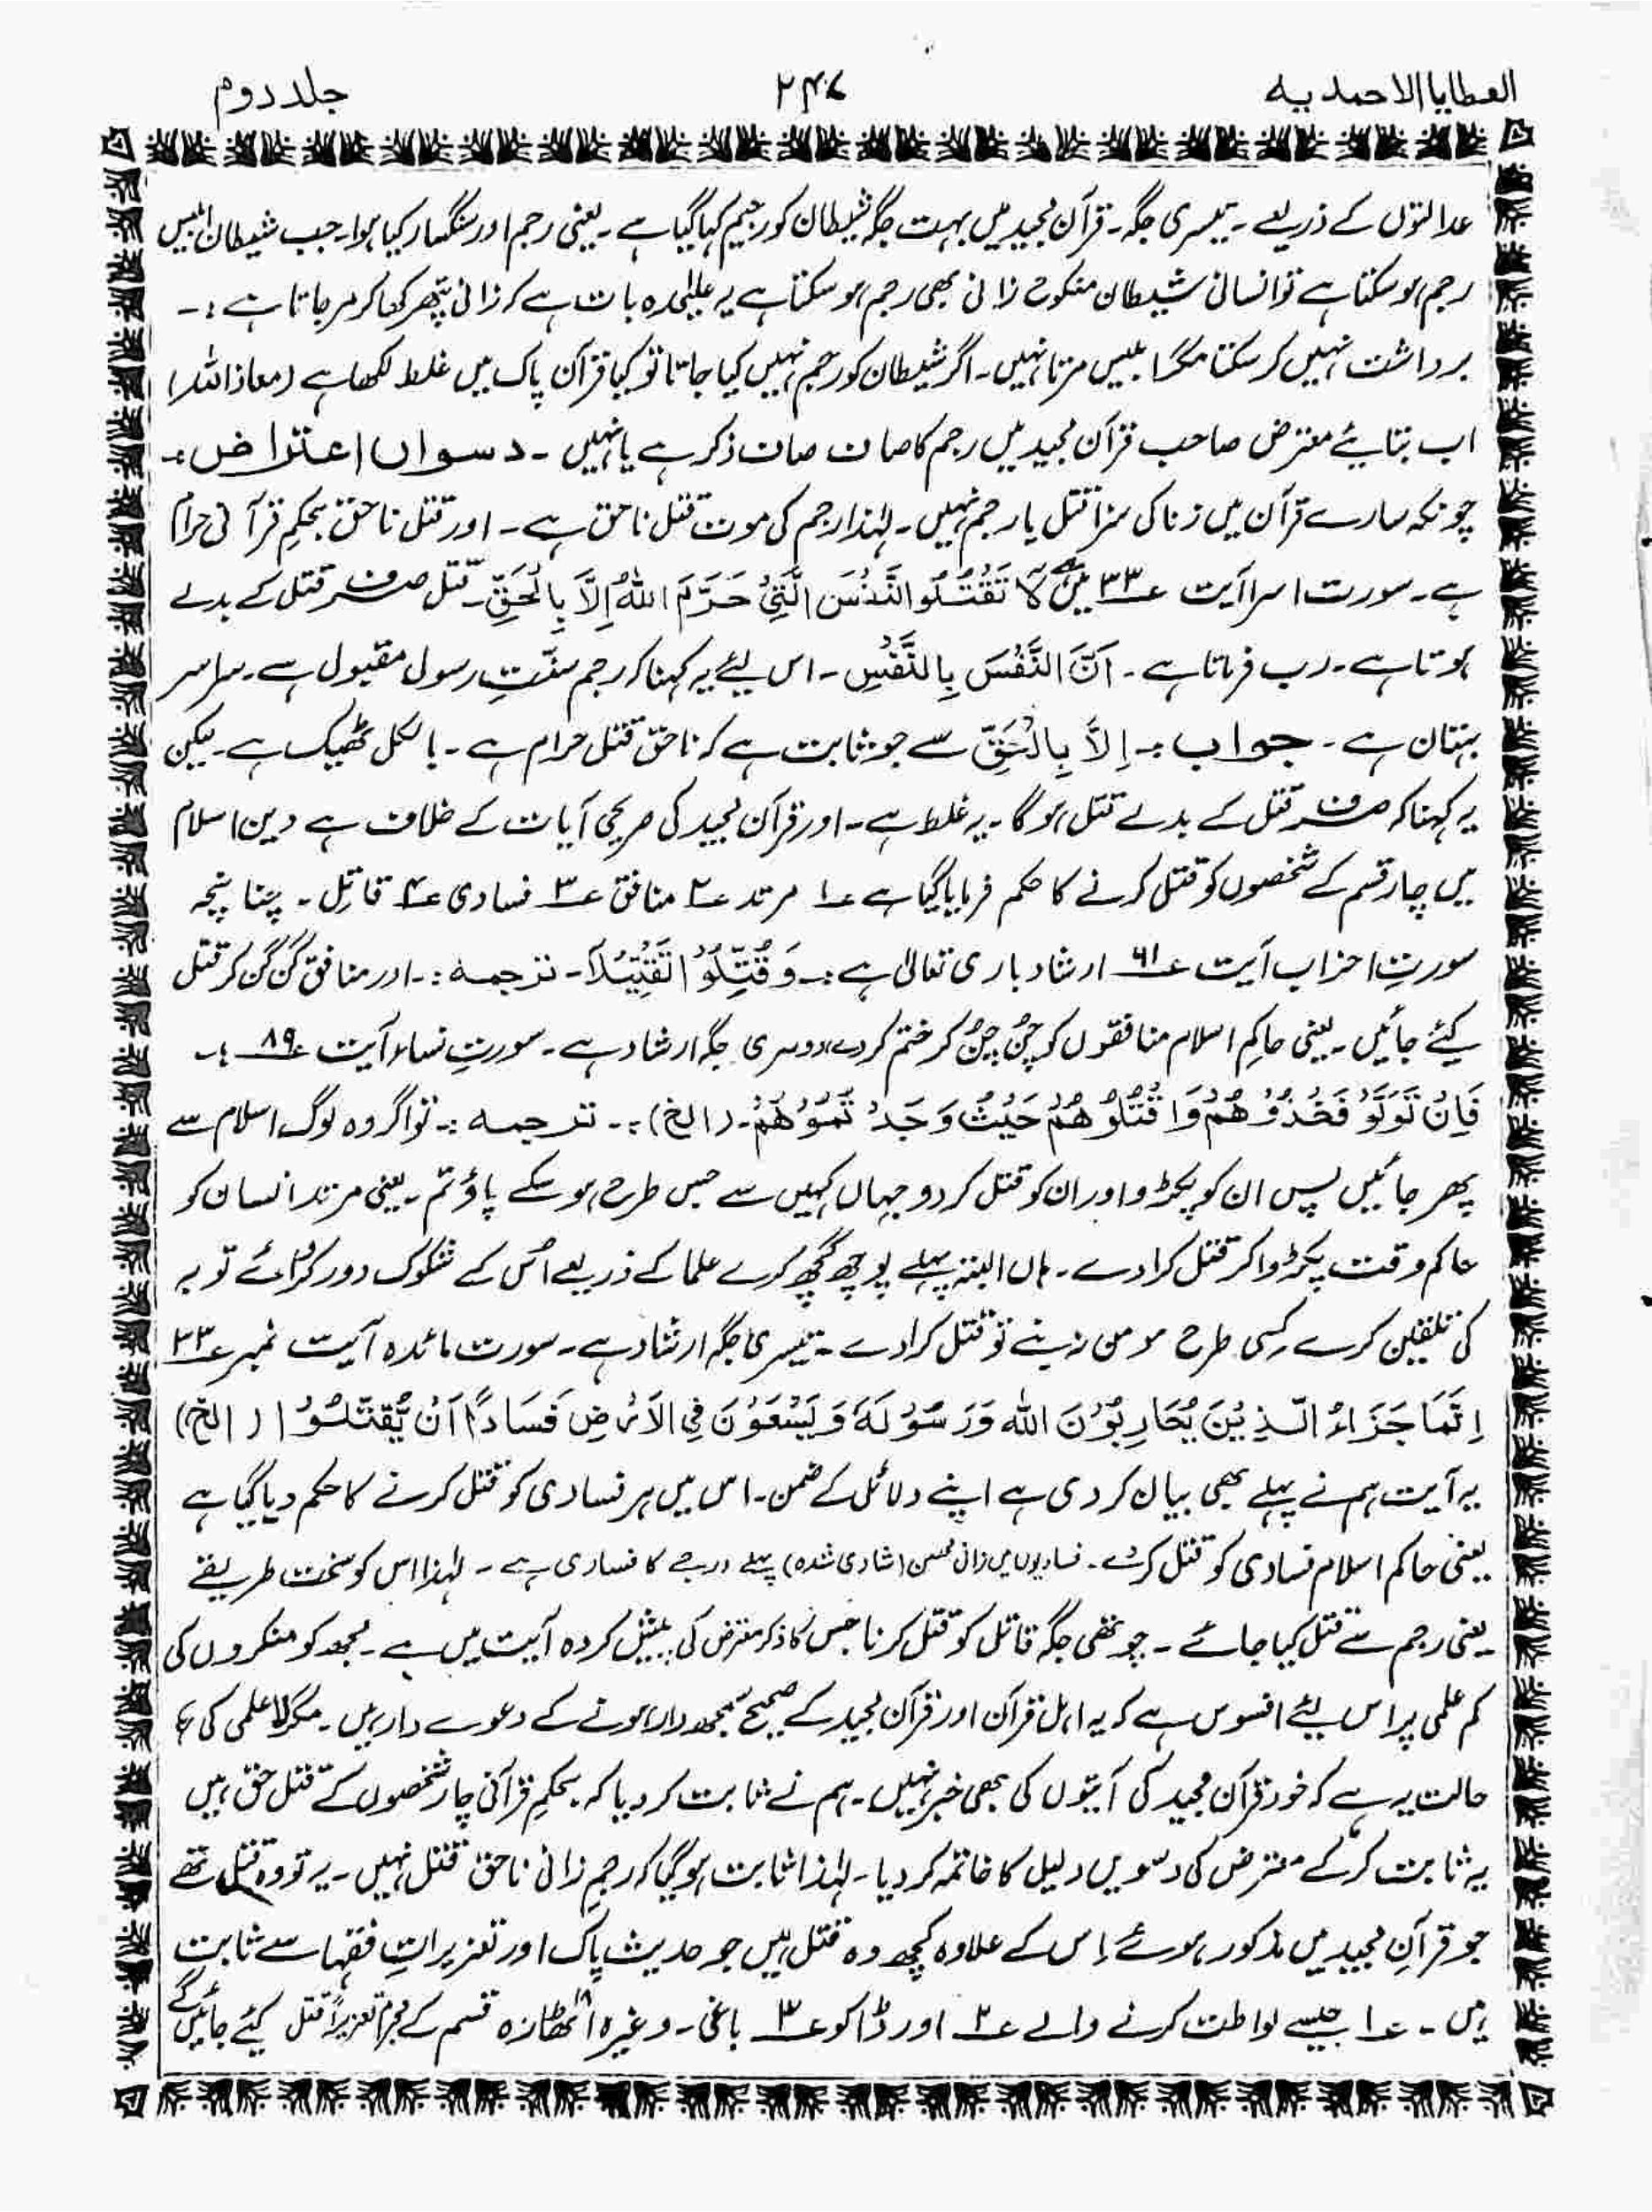 العطایا الاحمدیہ ۲۴۷ جلد دوم
عدالتوں کے ذریعے ۔ تیسری جگہ ۔ قرآن مجید میں بہت جگہ شیطان کو رجیم کہا گیا ہے ۔ یعنی رجم اور سنگسار کیا ہوا۔ جب شیطان ابلیس
رجم ہو سکتا ہے تو انسانی شیطان منکوح زانی بھی رجم ہو سکتا ہے یہ علیٰحدہ بات ہے کہ زانی پتھر کھا کر مر جاتا ہے :۔
برداشت نہیں کر سکتا مگر ابلیس مرتا نہیں ۔ اگر شیطان کو رجم نہیں کیا جاتا تو کیا قرآن پاک میں غلط لکھا ہے (معاذ اللہ)
اب بتایئے معترض صاحب قرآن مجید میں رجم کا صاف صاف ذکر ہے یا نہیں ۔ دسواں اعتراض :۔
چونکہ سارے قرآن میں زنا کی سزا قتل یا رجم نہیں ۔ لہٰذا رجم کی موت قتل ناحق ہے ۔ اور قتل ناحق بحکمِ قرآنی حرام
ہے ۔ سورت اسرا آیت ع۳۳ میں ہے لَا تَقْتُلُوا النَّفْسَ الَّتِیْ حَرَّمَ اللہُ اِلَّا بِالْحَقِّ ۔ قتل صرف قتل کے بدلے
ہوتا ہے ۔ رب فرماتا ہے ۔ اَنَّ النَّفْسَ بِالنَّفْسِ ۔ اس لیئے یہ کہنا کہ رجم سنّتِ رسول مقبول ہے ۔ سراسر
بہتان ہے ۔ جواب :۔ اِلَّا بِالْحَقِّ سے جو ثابت ہے کہ ناحق قتل حرام ہے ۔ بالکل ٹھیک ہے ۔ لیکن
یہ کہنا کہ صرف قتل کے بدلے قتل ہو گا ۔ یہ غلط ہے ۔ اور قرآن مجید کی صریحی آیات کے خلاف ہے دین اسلام
میں چار قسم کے شخصوں کو قتل کرنے کا حکم فرمایا گیا ہے ع۱ مرتد ع۲ منافق ع۳ فسادی ع۴ قاتِل ۔ چنانچہ
سورتِ احزاب آیت ع۶۱ ارشاد باری تعالیٰ ہے :۔ وَقُتِّلُوْا تَقْتِیْلًا ۔ ترجمہ :۔ اور منافق گن گن کر قتل
کیئے جائیں ۔ یعنی حاکِم اسلام منافقوں کو چُن چُن کر ختم کر دے، دوسری جگہ ارشاد ہے ۔ سورتِ نساء آیت ع۸۹ :۔
فَاِنْ تَوَلَّوْ فَخُذُوْهُمْ وَاقْتُلُوْ هُمْ حَیْثُ وَجَدْ تُمُوْهُمْ ۔ (الخ) :۔ ترجمہ :۔ تو اگر وہ لوگ اسلام سے
پھر جائیں پس ان کو پکڑو اور ان کو قتل کر دو جہاں کہیں سے جس طرح ہو سکے پاؤ تم ۔ یعنی مرتد انسان کو
حاکم وقت پکڑوا کر قتل کرا دے ۔ ہاں البتہ پہلے پوچھ گچھ کرے علما کے ذریعے اُس کے شکوک دور کرائے توبہ
کی تلقین کرے کِسی طرح مومن نہ بنے تو قتل کرا دے ۔ تیسری جگہ ارشاد ہے ۔ سورت مائدہ آیت نمبر ع۳۳
اِنَّمَا جَزَاءُ الَّذِیْنَ یُحَارِبُوْنَ اللہ وَرَسُوْلَهٗ وَیَسْعَوْنَ فِی الْاَرْضِ فَسَادًا اَنْ یُّقَتَّلُوْا (الخ)
یہ آیت ہم نے پہلے بھی بیان کر دی ہے اپنے دلائل کے ضمن ۔ اس میں ہر فسادی کو قتل کرنے کا حکم دیا گیا ہے
یعنی حاکم اسلام فسادی کو قتل کر دے ۔ فسادیوں میں زانی محسن (شادی شدہ) پہلے درجے کا فسادی ہے ۔ لہٰذا اس کو سخت طریقے
یعنی رجم سے قتل کیا جائے ۔ چوتھی جگہ قاتل کو قتل کرنا جس کا ذکر معترض کی پیش کردہ آیت میں ہے ۔ مجھ کو منکروں کی
کم علمی پر اس لیئے افسوس ہے کہ یہ اہل قرآن اور قرآن مجید کے صحیح سمجھدار ہونے کے دعوے دار ہیں ۔ مگر لا علمی کی
حالت یہ ہے کہ خود قرآن مجید کی آیتوں کی بھی خبر نہیں ۔ ہم نے ثابت کر دیا کہ بحکمِ قرآنی چار شخصوں کے قتل حق ہیں
یہ ثابت کر کے معترض کی دسویں دلیل کا خاتمہ کر دیا ۔ لہٰذا ثابت ہو گیا کہ رجمِ زانی ناحق قتل نہیں ۔ یہ تو وہ قتل تھے
جو قرآنِ مجید میں مذکور ہوئے اِس کے علاوہ کچھ وہ قتل ہیں جو حدیث پاک اور تعزیراتِ فقہا سے ثابت
ہیں ۔ ع۱ جیسے لواطت کرنے والے ع۲ اور ڈاکو ع۳ باغی ۔ وغیرہ اٹھارہ ۱۸ قسم کے مجرم تعزیراً قتل کیئے جائیں گے